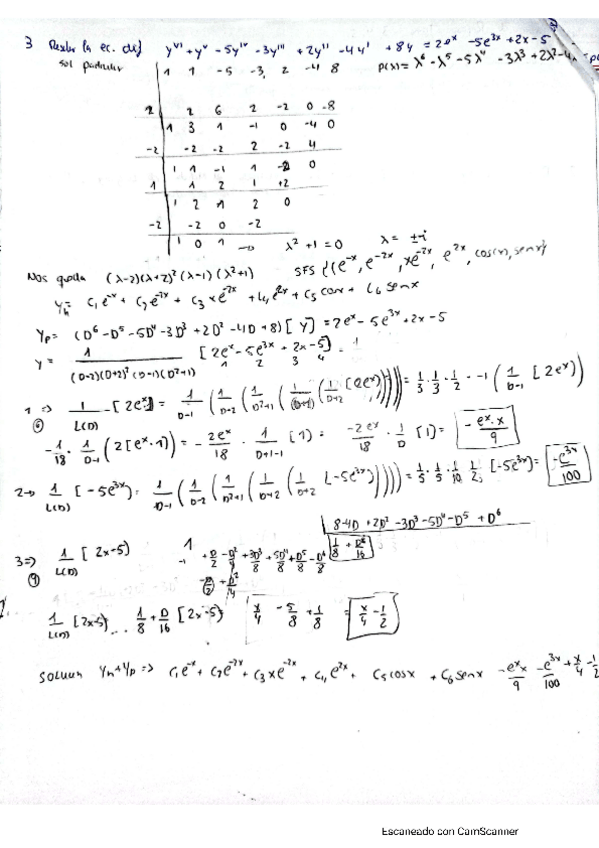 3 Resolver la ec. dif y^VI + y^V - 5y^IV - 3y''' + 2y'' - 4y' + 8y = 2e^x - 5e^3x + 2x - 5
sol particular 1 1 -5 -3 2 -4 8 p(λ) = λ^6 - λ^5 - 5λ^4 - 3λ^3 + 2λ^2 - 4λ
2 2 6 2 -2 0 -8
1 3 1 -1 0 -4 0
-2 -2 -2 2 -2 4
1 1 -1 1 -2 0
1 1 2 1 +2
1 2 1 2 0
-2 -2 0 -2
1 0 1 → λ^2 + 1 = 0 λ = ±i
Nos queda (λ-2)(λ+2)^2(λ-1)(λ^2+1) SFS {(e^-x, e^-2x, xe^-2x, e^2x, cos(x), senx}
Y_h = C1e^-x + C2e^-2x + C3xe^-2x + C4e^2x + C5cosx + C6senx
Yp = (D^6 - D^5 - 5D^4 - 3D^3 + 2D^2 - 4D + 8)[Y] = 2e^x - 5e^3x + 2x - 5
Y = 1/((D-2)(D+2)^2(D-1)(D^2+1)) [2e^x - 5e^3x + 2x - 5]
1 2 3 4
1 => 1/L(D) [2e^x] = 1/D-1 (1/D-2 (1/D^2+1 (1/D+2 (1/D+2 [2e^x])))) = 1/3 · 1/3 · 1/2 · -1 (1/D-1 [2e^x])
-1/18 · 1/D-1 (2[e^x·1]) = -2e^x/18 · 1/D+1-1 [1] = -2e^x/18 · 1/D [1] = -e^x·x/9
2 → 1/L(D) [-5e^3x] = 1/D-1 (1/D-2 (1/D^2+1 (1/D+2 (1/D+2 [-5e^3x])))) = 1/5 · 1/5 · 1/10 · 1/2 [-5e^3x] = -e^3x/100
8 - 4D + 2D^2 - 3D^3 - 5D^4 - D^5 + D^6
3 => 1/L(D) [2x-5] 1 + D/2 - D^2/4 + 3D^3/8 + 5D^4/8 + D^5/8 - D^6/8 1/8 + D/16
-D/2 + D^2/4
1/L(D) [2x-5] .. 1/8 + D/16 [2x-5] x/4 - 5/8 + 1/8 = x/4 - 1/2
solucion Yh + Yp => C1e^-x + C2e^-2x + C3xe^-2x + C4e^2x + C5cosx + C6senx - e^x x/9 - e^3x/100 + x/4 - 1/2
Escaneado con CamScanner